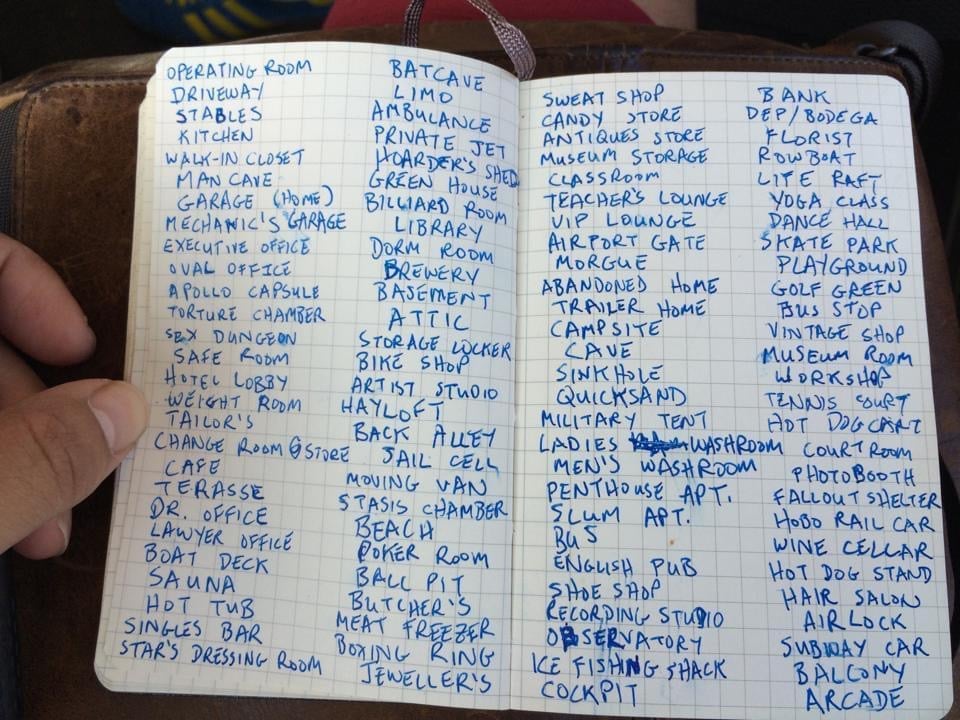 OPERATING ROOM
DRIVEWAY
STABLES
KITCHEN
WALK-IN CLOSET
MAN CAVE
GARAGE (HOME)
MECHANIC'S GARAGE
EXECUTIVE OFFICE
OVAL OFFICE
APOLLO CAPSULE
TORTURE CHAMBER
SEX DUNGEON
SAFE ROOM
HOTEL LOBBY
WEIGHT ROOM
TAILOR'S
CHANGE ROOM @ STORE
CAFE
TERASSE
DR. OFFICE
LAWYER OFFICE
BOAT DECK
SAUNA
HOT TUB
SINGLES BAR
STAR'S DRESSING ROOM
BATCAVE
LIMO
AMBULANCE
PRIVATE JET
HOARDER'S SHED
GREEN HOUSE
BILLIARD ROOM
LIBRARY
DORM ROOM
BREWERY
BASEMENT
ATTIC
STORAGE LOCKER
BIKE SHOP
ARTIST STUDIO
HAYLOFT
BACK ALLEY
JAIL CELL
MOVING VAN
STASIS CHAMBER
BEACH
POKER ROOM
BALL PIT
BUTCHER'S
MEAT FREEZER
BOXING RING
JEWELLER'S
SWEAT SHOP
CANDY STORE
ANTIQUES STORE
MUSEUM STORAGE
CLASSROOM
TEACHER'S LOUNGE
VIP LOUNGE
AIRPORT GATE
MORGUE
ABANDONED HOME
TRAILER HOME
CAMPSITE
CAVE
SINKHOLE
QUICKSAND
MILITARY TENT
LADIES WASHROOM
MEN'S WASHROOM
PENTHOUSE APT.
SLUM APT.
BUS
ENGLISH PUB
SHOE SHOP
RECORDING STUDIO
OBSERVATORY
ICE FISHING SHACK
COCKPIT
BANK
DEP/BODEGA
FLORIST
ROWBOAT
LIFE RAFT
YOGA CLASS
DANCE HALL
SKATE PARK
PLAYGROUND
GOLF GREEN
BUS STOP
VINTAGE SHOP
MUSEUM ROOM
WORKSHOP
TENNIS COURT
HOT DOG CART
COURT ROOM
PHOTOBOOTH
FALLOUT SHELTER
HOBO RAIL CAR
WINE CELLAR
HOT DOG STAND
HAIR SALON
AIRLOCK
SUBWAY CAR
BALCONY
ARCADE